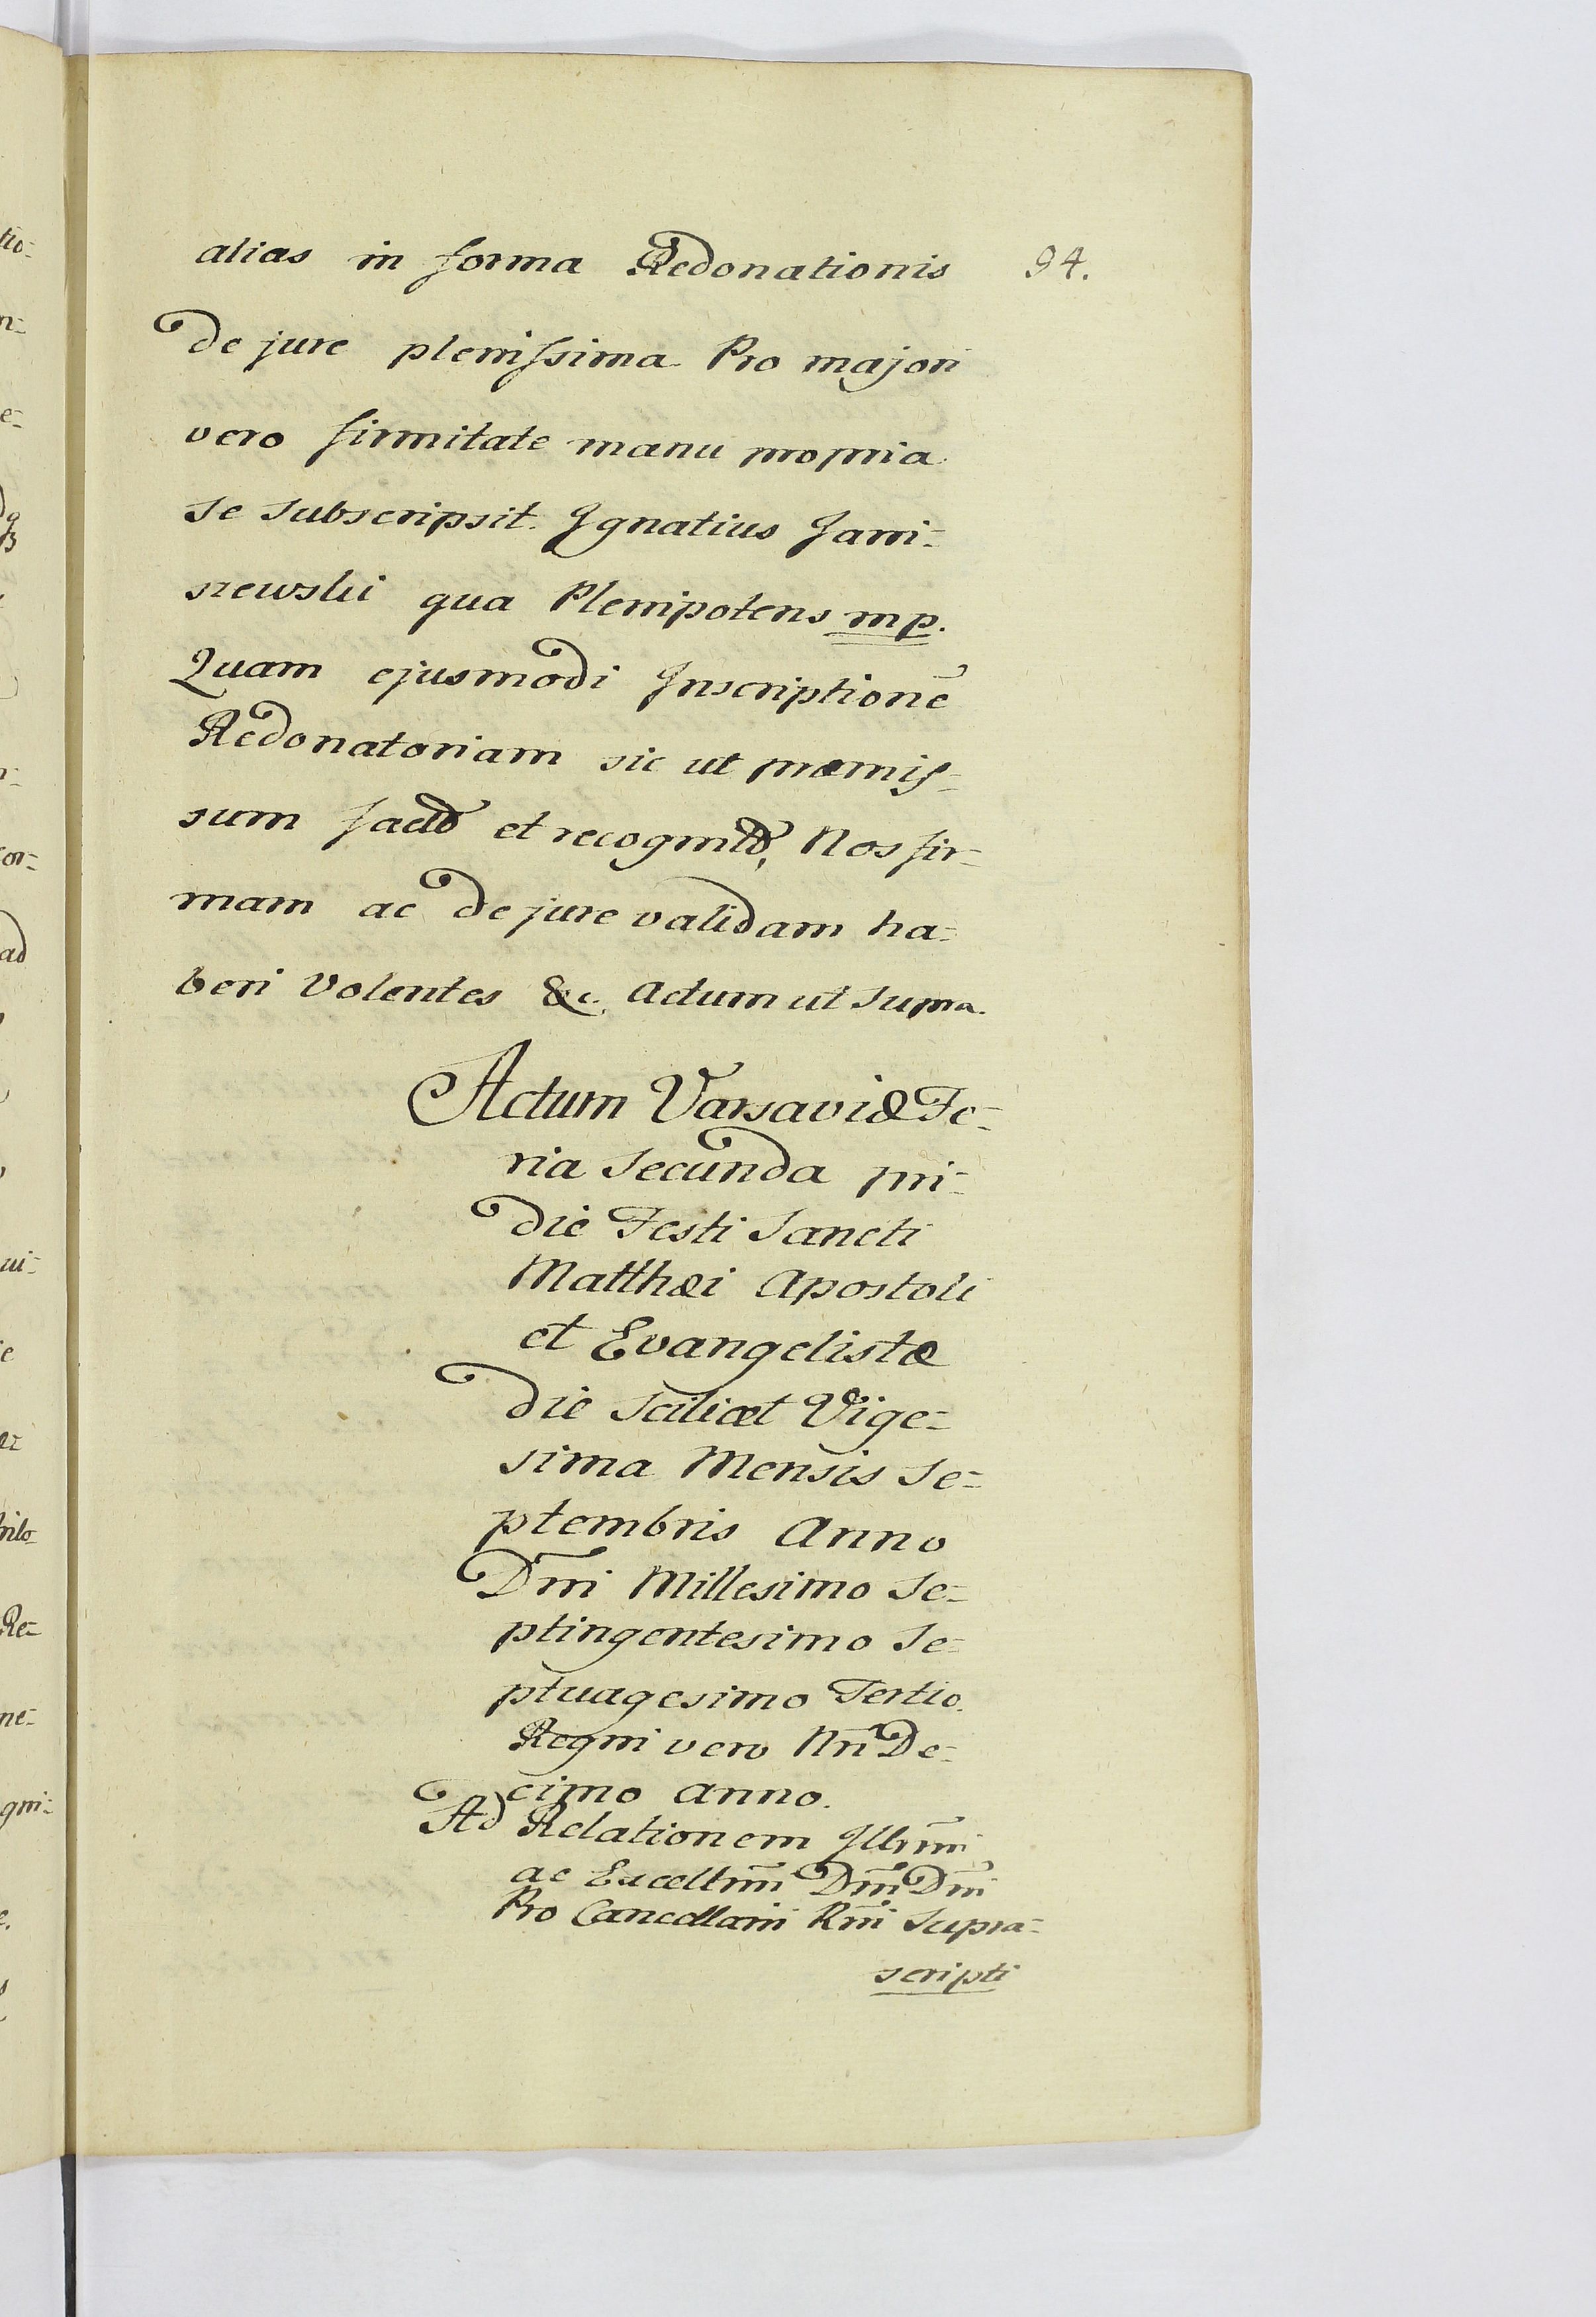 alias in forma Redonationis 94.
de jure plenissima Pro majori
vero firmitate manu propria
se subscripsit. Ignatius Jani=
szewski qua Plenipotens mp.
Quam ejusmodi Inscriptionē
Redonatoriam sic ut præmis=
sum factō et recognitō, Nos fir=
mam ac de jure validam ha=
beri Volentes &c. Actum ut supra.
Actum Varsaviæ Fe=
ria secunda pri=
die Festi Sancti
Matthæi Apostoli
et Evangelistæ
die scilicet Vige=
sima Mensis Se=
ptembris Anno
Dñi Millesimo Se=
ptingentesimo Se=
ptuagesimo Tertio.
Regni vero Nri De=
cimo Anno.
Ad Relationem Illrmi
ac Excellmi Dñi Dñi
Pro Cancellarii Rñi Supra=
scripti